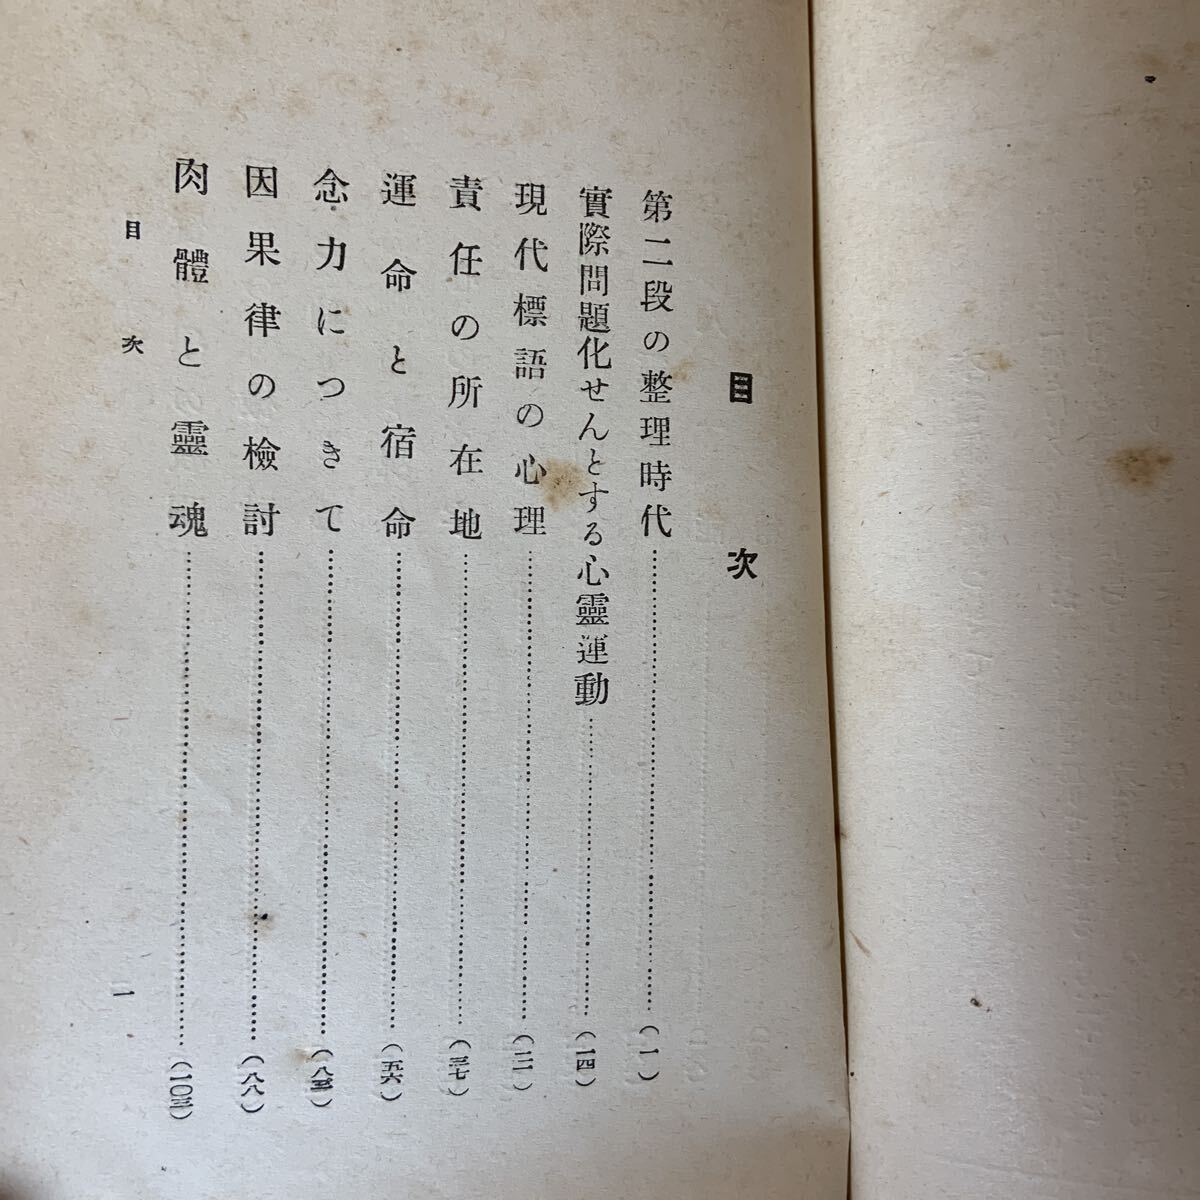 目次
第二段の整理時代……(一)
實際問題化せんとする心靈運動……(一四)
現代標語の心理……(二一)
責任の所在地……(三七)
運命と宿命……(五六)
念力につきて……
因果律の檢討……(八八)
肉體と靈魂……(一〇三)
目次 一